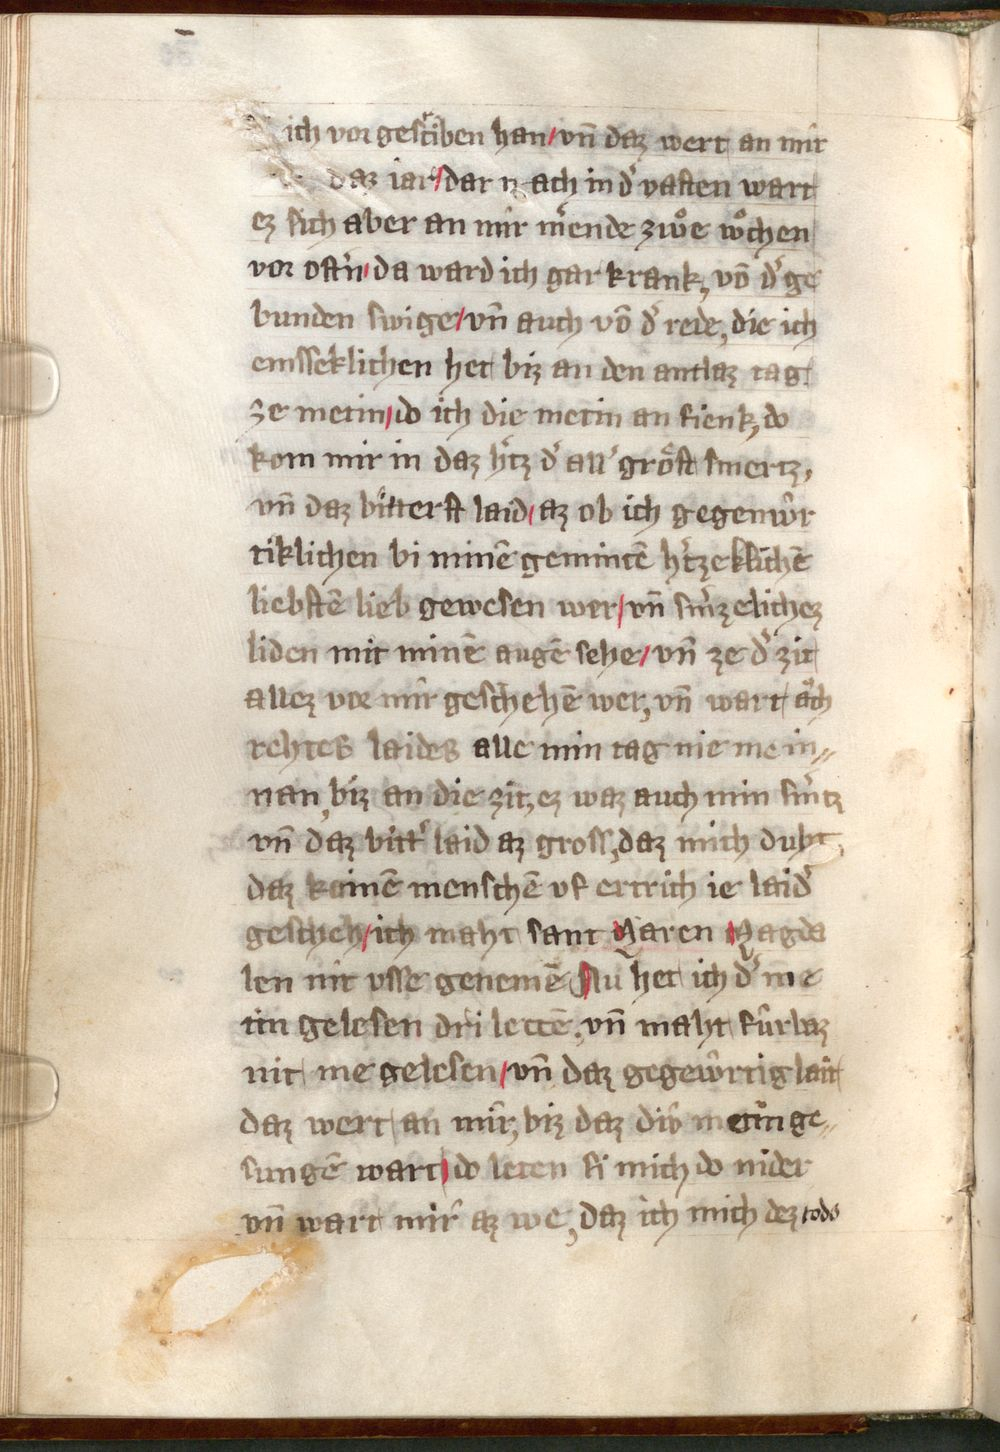 ich vor gescͥben han / vn̄ daz wert an mir
daz iar / dar nach in d͛ vasten wart
ez sich aber an mir m͛ende zwoͤe woͤchen
vor ost͛n / da ward ich gar krank, vō d͛ ge
bunden swige / vn̄ auch vō d͛ rede, die ich
emsseklichen het biz an den antlaz tag
ze metin / do ich die metin an fienk, do
kom mir in daz h͛tz d͛ all͛ groͤst smertz,
vn̄ daz bitterst laid / az ob ich gegenwͦr
tiklichen bi minē gemintē h͛tzeklichē
liebstē lieb gewesen wer / vn̄ sm͛zelichez
liden mit minē augē sehe / vn̄ ze d͛ zit
allez vor mir geschehē wer, vn̄ wart aͧch
rehtes laides alle min tag nie me in⸗
nan, biz an die zit, ez waz auch min sm͛tz
vn̄ daz bitt͛ laid az gross, daz mich duht,
daz keinē menschē vf ertrich ie laid͛
gescheh / ich maht sant Maren Magda
len nit vsse genemē Nu het ich d͛ me
tin gelesen dri letcē, vn̄ maht fuͤrbaz
nit me gelesen / vn̄ daz gegewͦrtig lait
daz wert an mir, biz daz diͮ metin ge⸗
sungē wart / do leten si mich do nider
vn̄ wart mir az we, daz ich mich dez tods